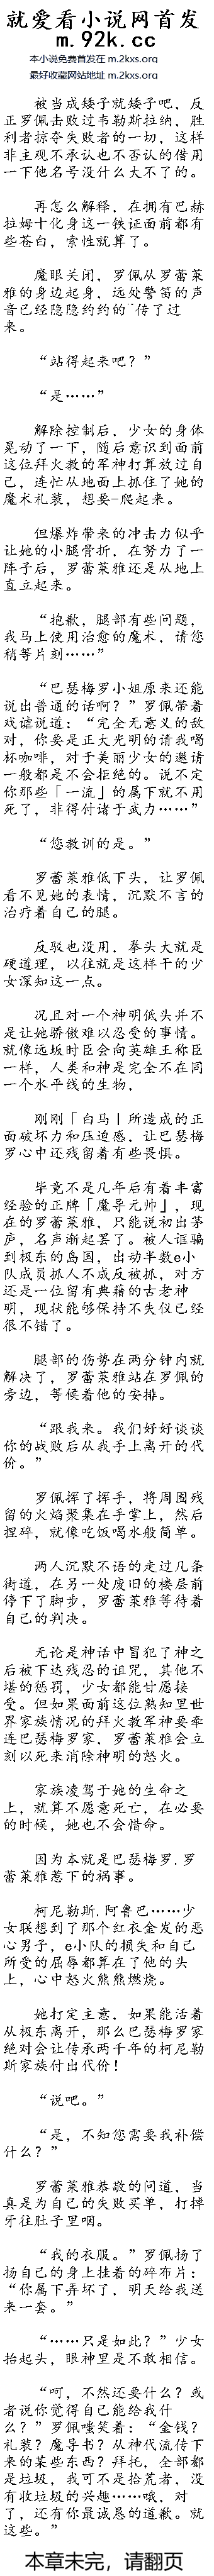 就爱看小说网首发
m.92k.cc
本小说免费首发在 m.2kxs.org
最好收藏网站地址 m.2kxs.org
被当成矮子就矮子吧，反
正罗佩击败过韦勒斯拉纳，胜
利者掠夺失败者的一切，这样
非主观不承认也不否认的借用
一下他名号没什么大不了的。
再怎么解释，在拥有巴赫
拉姆十化身这一铁证面前都有
些苍白，索性就算了。
魔眼关闭，罗佩从罗蕾莱
雅的身边起身，远处警笛的声
音已经隐隐约约的¨传了过
来。
“站得起来吧？”
“是……”
解除控制后，少女的身体
晃动了一下，随后意识到面前
这位拜火教的军神打算放过自
己，连忙从地面上抓住了她的
魔术礼装，想要-爬起来。
但爆炸带来的冲击力似乎
让她的小腿骨折，在努力了一
阵子后，罗蕾莱雅还是从地上
直立起来。
“抱歉，腿部有些问题，
我马上使用治愈的魔术，请您
稍等片刻……”
“巴瑟梅罗小姐原来还能
说出普通的话啊？”罗佩带着
戏谑说道：“完全无意义的敌
对，你要是正大光明的请我喝
杯咖啡，对于美丽少女的邀请
一般都是不会拒绝的。说不定
你那些「一流」的属下就不用
死了，非得付诸于武力……”
“您教训的是。”
罗蕾莱雅低下头，让罗佩
看不见她的表情，沉默不言的
治疗着自己的腿。
反驳也没用，拳头大就是
硬道理，以往就是这样干的少
女深知这一点。
况且对一个神明低头并不
是让她骄傲难以忍受的事情。
就像远坂时臣会向英雄王称臣
一样，人类和神是完全不在同
一个水平线的生物，
刚刚「白马」所造成的正
面破坏力和压迫感，让巴瑟梅
罗心中还残留着有些畏惧。
毕竟不是几年后有着丰富
经验的正牌「魔导元帅」，现
在的罗蕾莱雅，只能说初出茅
庐，名声渐起罢了。被人诓骗
到极东的岛国，出动半数e小
队成员抓人不成反被抓，对方
还是一位留有典籍的古老神
明，现状能够保持不失仪已经
很不错了。
腿部的伤势在两分钟内就
解决了，罗蕾莱雅站在罗佩的
旁边，等候着他的安排。
“跟我来。我们好好谈谈
你的战败后从我手上离开的代
价。”
罗佩挥了挥手，将周围残
留的火焰聚集在手掌上，然后
捏碎，就像吃饭喝水般简单。
两人沉默不语的走过几条
街道，在另一处废旧的楼层前
停下了脚步，罗蕾莱雅等待着
自己的判决。
无论是神话中冒犯了神之
后被下达残忍的诅咒，其他不
堪的惩罚，少女都能甘愿接
受。但如果面前这位熟知里世
界家族情况的拜火教军神要牵
连巴瑟梅罗家，罗蕾莱雅会立
刻以死来消除神明的怒火。
家族凌驾于她的生命之
上，就算不愿意死亡，在必要
的时候，她也不会惜命。
因为本就是巴瑟梅罗.罗
蕾莱雅惹下的祸事。
柯尼勒斯.阿鲁巴……少
女联想到了那个红衣金发的恶
心男子，e小队的损失和自己
所受的屈辱都算在了他的头
上，心中怒火熊熊燃烧。
她打定主意，如果能活着
从极东离开，那么巴瑟梅罗家
绝对会让传承两千年的柯尼勒
斯家族付出代价！
“说吧。”
“是，不知您需要我补偿
什么？”
罗蕾莱雅恭敬的问道，当
真是为自己的失败买单，打掉
牙往肚子里咽。
“我的衣服。”罗佩扬了
扬自己的身上挂着的碎布片：
“你属下弄坏了，明天给我送
来一套。”
“……只是如此？”少女
抬起头，眼神里是不敢相信。
“呵，不然还要什么？或
者说你觉得自己能给我什
么？”罗佩嗤笑着：“金钱？
礼装？魔导书？从神代流传下
来的某些东西？拜托，全部都
是垃圾，我可不是拾荒者，没
有收垃圾的兴趣……哦，对
了，还有你最诚恳的道歉。就
这些。”
本章未完，请翻页